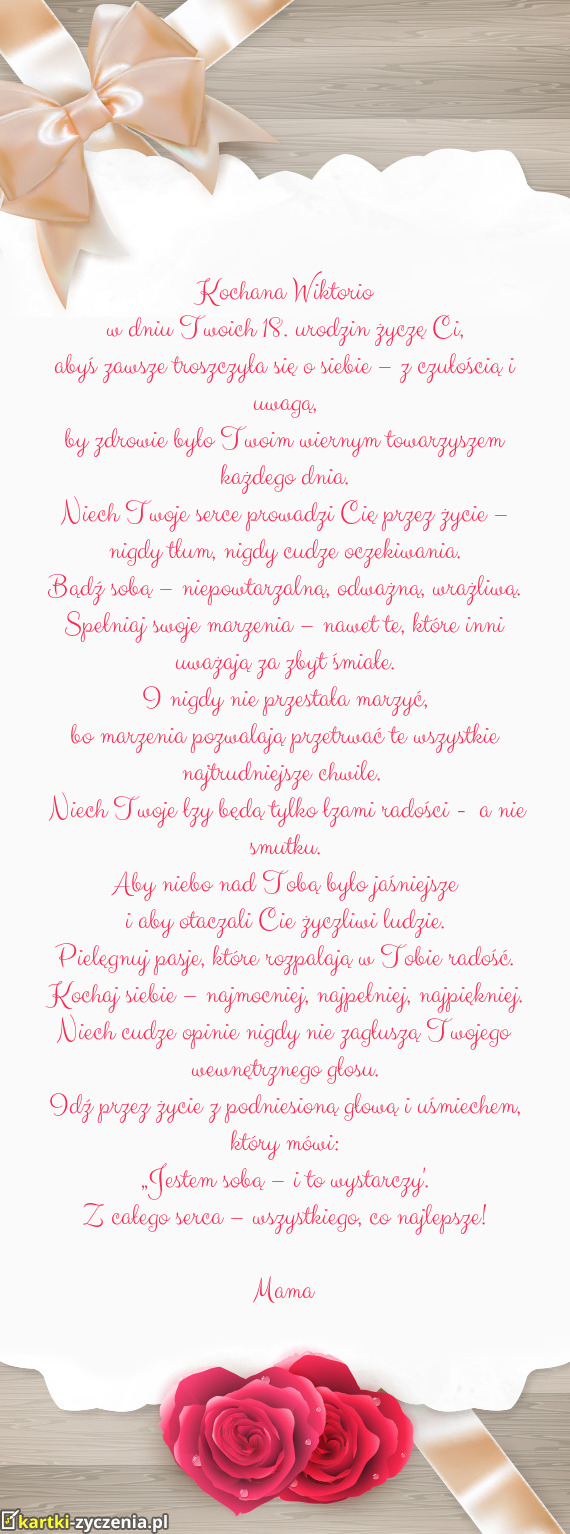 Kochana Wiktorio
w dniu Twoich 18. urodzin życzę Ci,
abyś zawsze troszczyła się o siebie – z czułością i
uwagą,
by zdrowie było Twoim wiernym towarzyszem
każdego dnia.
Niech Twoje serce prowadzi Cię przez życie –
nigdy tłum, nigdy cudze oczekiwania.
Bądź sobą – niepowtarzalną, odważną, wrażliwą.
Spełniaj swoje marzenia – nawet te, które inni
uważają za zbyt śmiałe.
I nigdy nie przestała marzyć,
bo marzenia pozwalają przetrwać te wszystkie
najtrudniejsze chwile.
Niech Twoje łzy będą tylko łzami radości - a nie
smutku.
Aby niebo nad Tobą było jaśniejsze
i aby otaczali Cie życzliwi ludzie.
Pielęgnuj pasje, które rozpalają w Tobie radość.
Kochaj siebie – najmocniej, najpełniej, najpiękniej.
Niech cudze opinie nigdy nie zagłuszą Twojego
wewnętrznego głosu.
Idź przez życie z podniesioną głową i uśmiechem,
który mówi:
„Jestem sobą – i to wystarczy'.
Z całego serca – wszystkiego, co najlepsze!
Mama
kartki-zyczenia.pl